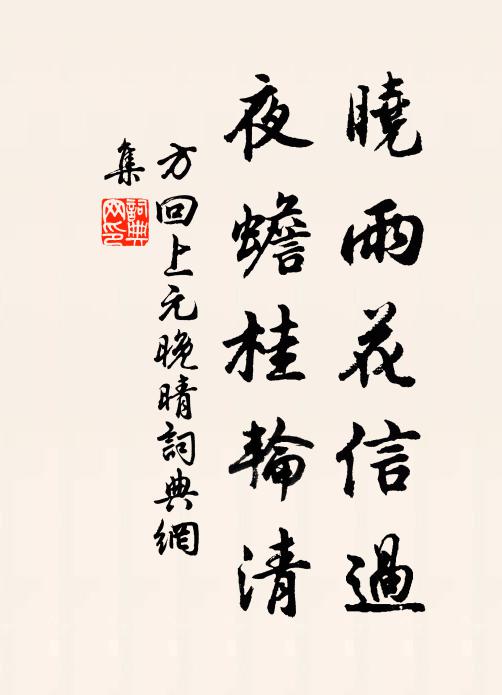 曉雨花信過
夜蟾桂輪清
方回上元晚晴詞典網
集
詞典網印